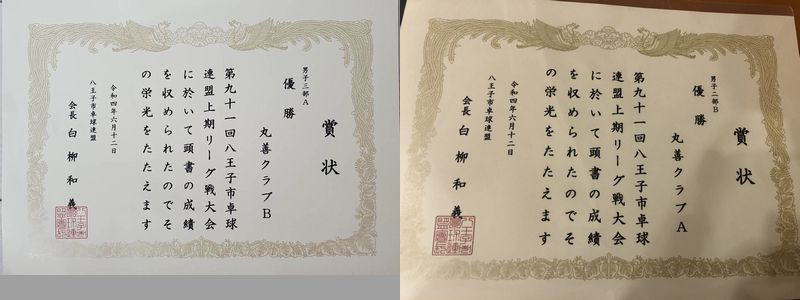 賞状
男子三部A
優勝
丸善クラブB
第九十一回八王子市卓球
連盟上期リーグ戦大会
に於いて頭書の成績
を収められたのでそ
の栄光をたたえます
令和四年六月十二日
八王子市卓球連盟
会長 白柳和義
賞状
男子二部B
優勝
丸善クラブA
第九十一回八王子市卓球
連盟上期リーグ戦大会
に於いて頭書の成績
を収められたのでそ
の栄光をたたえます
令和四年六月十二日
八王子市卓球連盟
会長 白柳和義